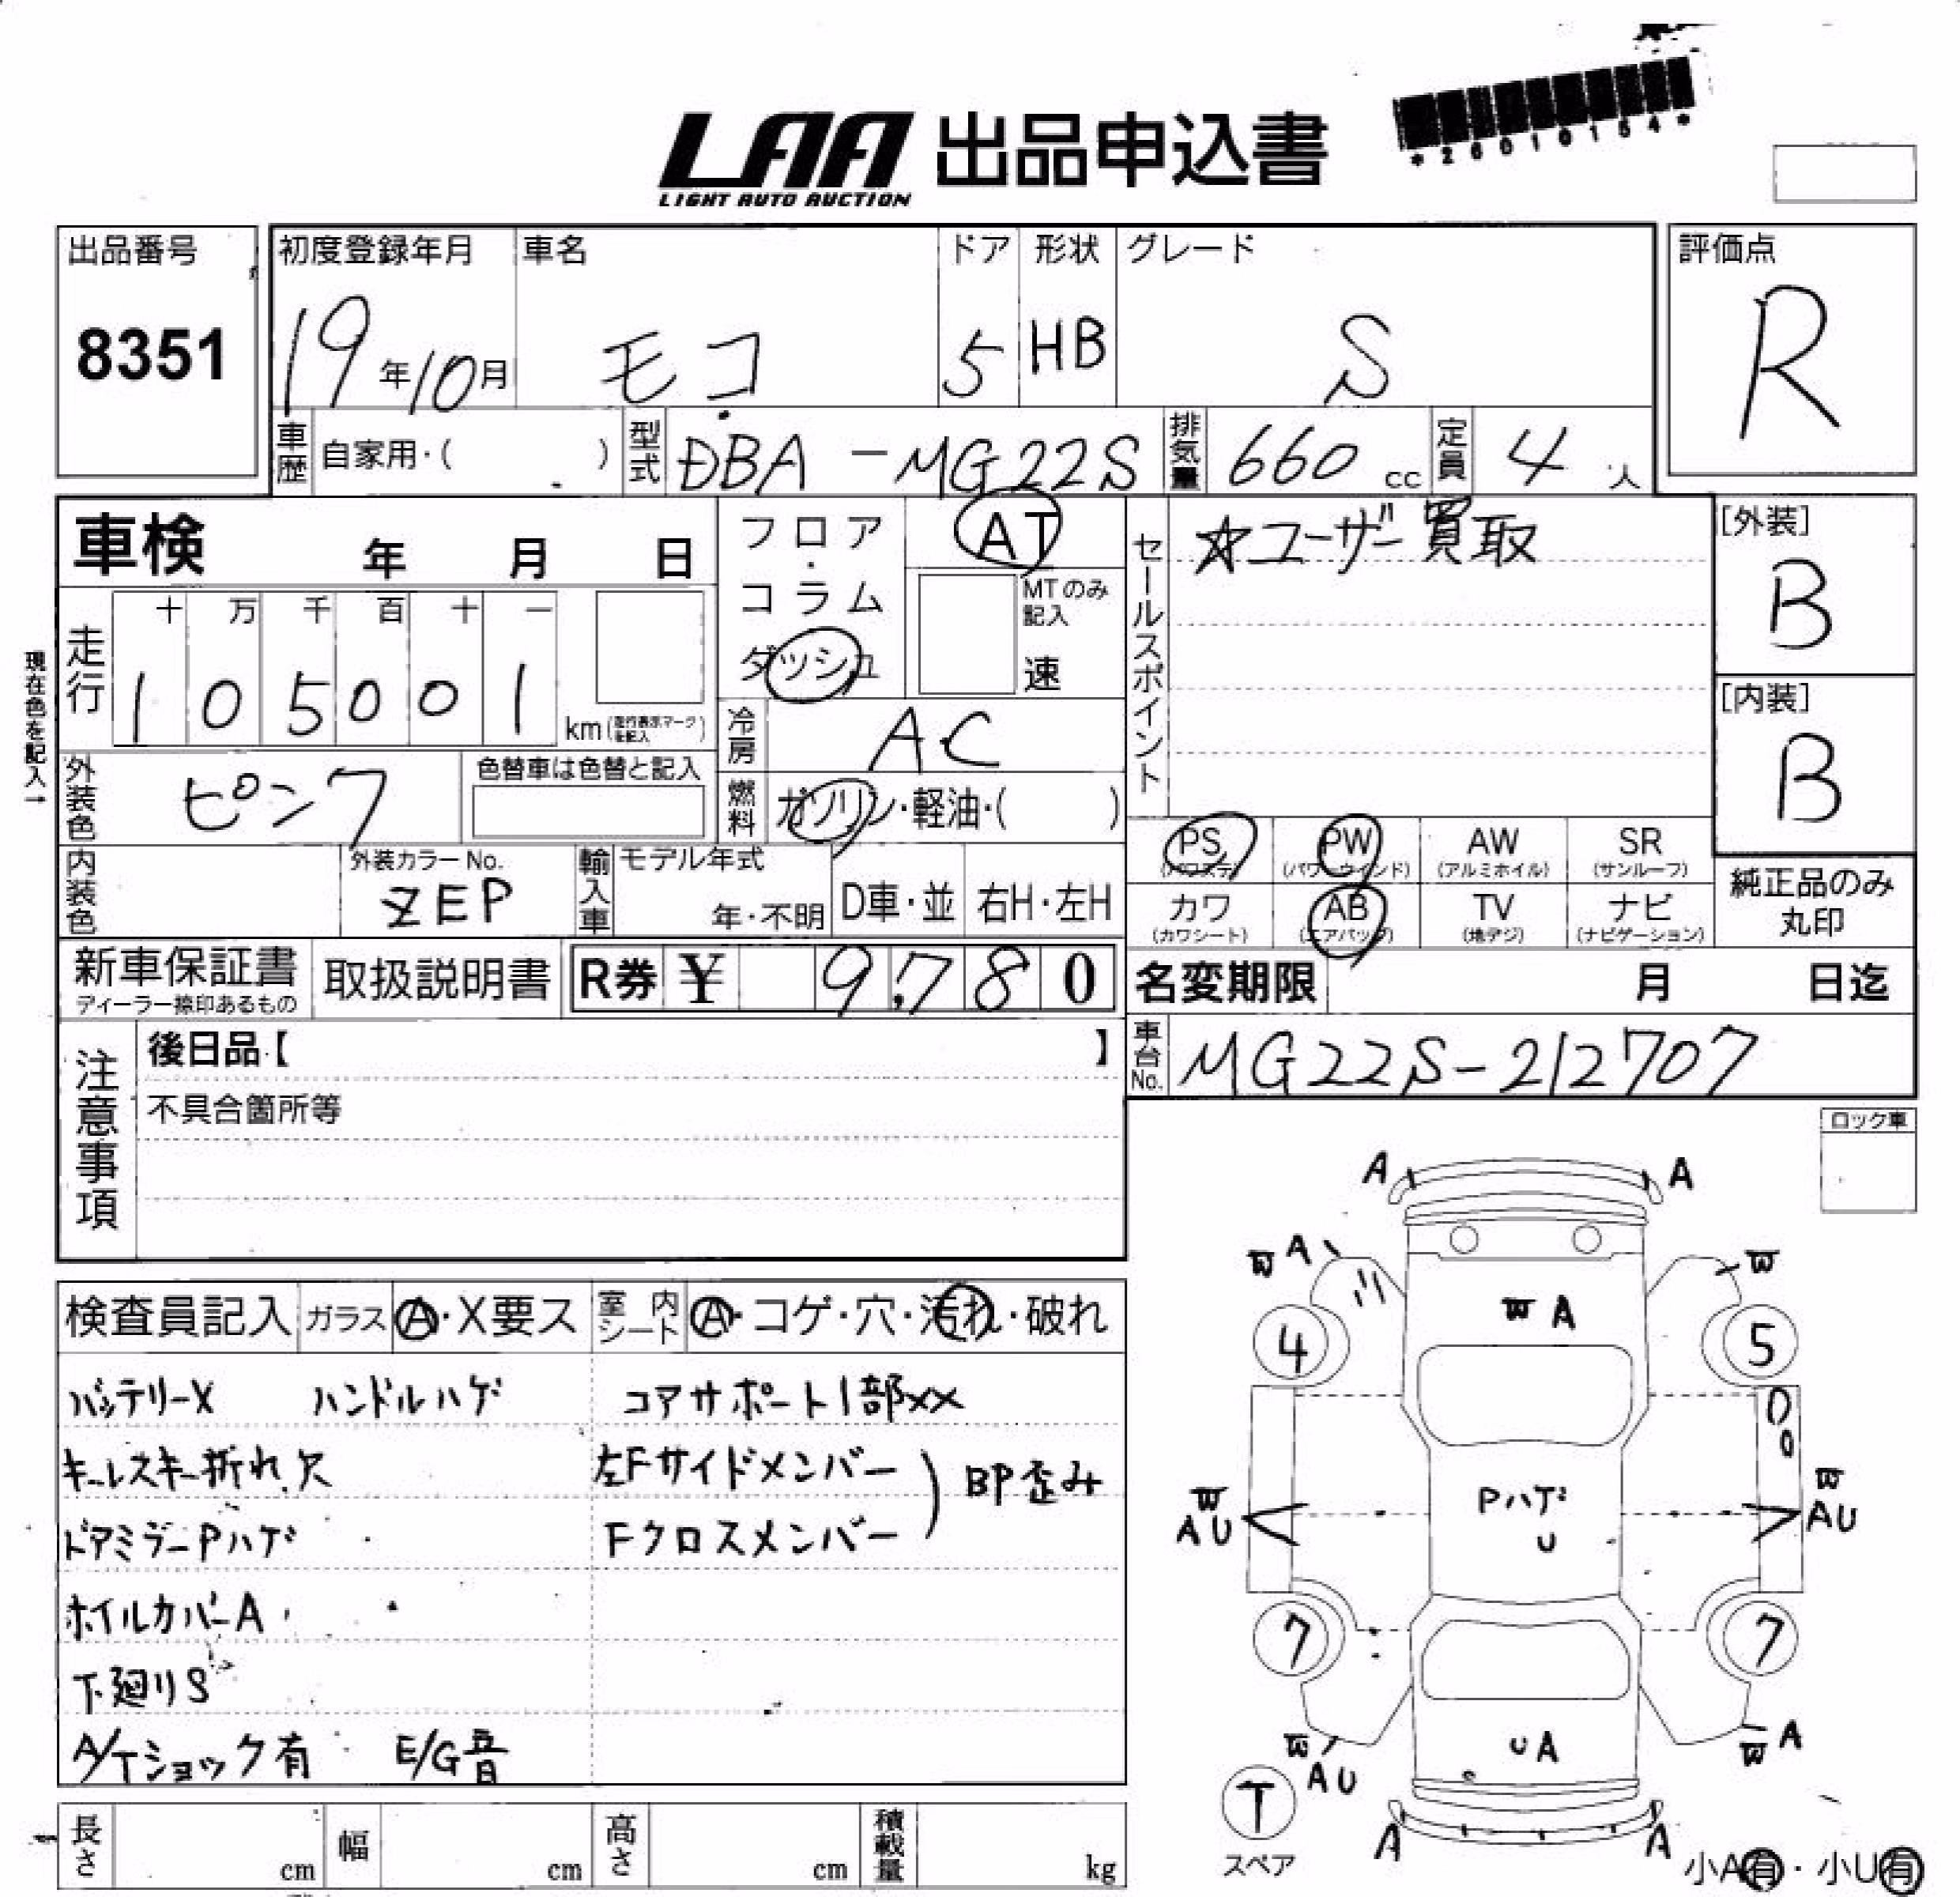 LAA 出品申込書
LIGHT AUTO AUCTION
*26010154*
出品番号
8351
初度登録年月 車名 ドア 形状 グレード
19年10月 モコ 5 HB S
評価点
R
車歴 自家用・( ) 型式 DBA-MG22S 排気量 660 cc 定員 4 人
車検 年 月 日
フロア・コラム ダッシュ
AT
MTのみ記入
速
セールスポイント
☆ユーザー買取
[外装]
B
[内装]
B
現在色を記入→
走行 十 万 千 百 十 一
1 0 5 0 0 1 km(走行表示マークを記入)
冷房 AC
外装色 ピンク 色替車は色替と記入
燃料 ガソリン・軽油・( )
内装色 外装カラーNo. ZEP
輸入車 モデル年式 年・不明 D車・並 右H・左H
PS (パワステ) PW (パワーウインド) AW (アルミホイル) SR (サンルーフ)
カワ (カワシート) AB (エアバッグ) TV (地デジ) ナビ (ナビゲーション)
純正品のみ丸印
新車保証書 ディーラー捺印あるもの 取扱説明書 R券 ¥ 9,780
名変期限 月 日迄
車台No. MG22S-212707
注意事項
後日品【 】
不具合箇所等
ロック車
検査員記入 ガラス A・X要ス 室内シート A・コゲ・穴・汚れ・破れ
バッテリーX ハンドルハゲ コアサポート1部XX
キーレスキー折れ欠 左Fサイドメンバー
BP歪み
ドアミラーPハゲ Fクロスメンバー
ホイルカバーA
下廻りS
A/Tショック有 E/G音
A A
W A W
W A
4 5
W AU
Pハゲ
U
W AU
7 7
W AU
U A
W A
S
T
スペア
A A
小A有・小U有
長さ cm 幅 cm 高さ cm 積載量 kg